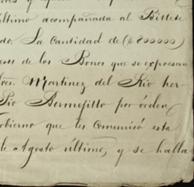 último acompañada al Billete
do. La Cantidad de ($200000)
de los Bonos que se expresan
Martinez del Rio her
Pio Bermejillo por orden
obierno que les Comunicó esta
de Agosto último, y se halla